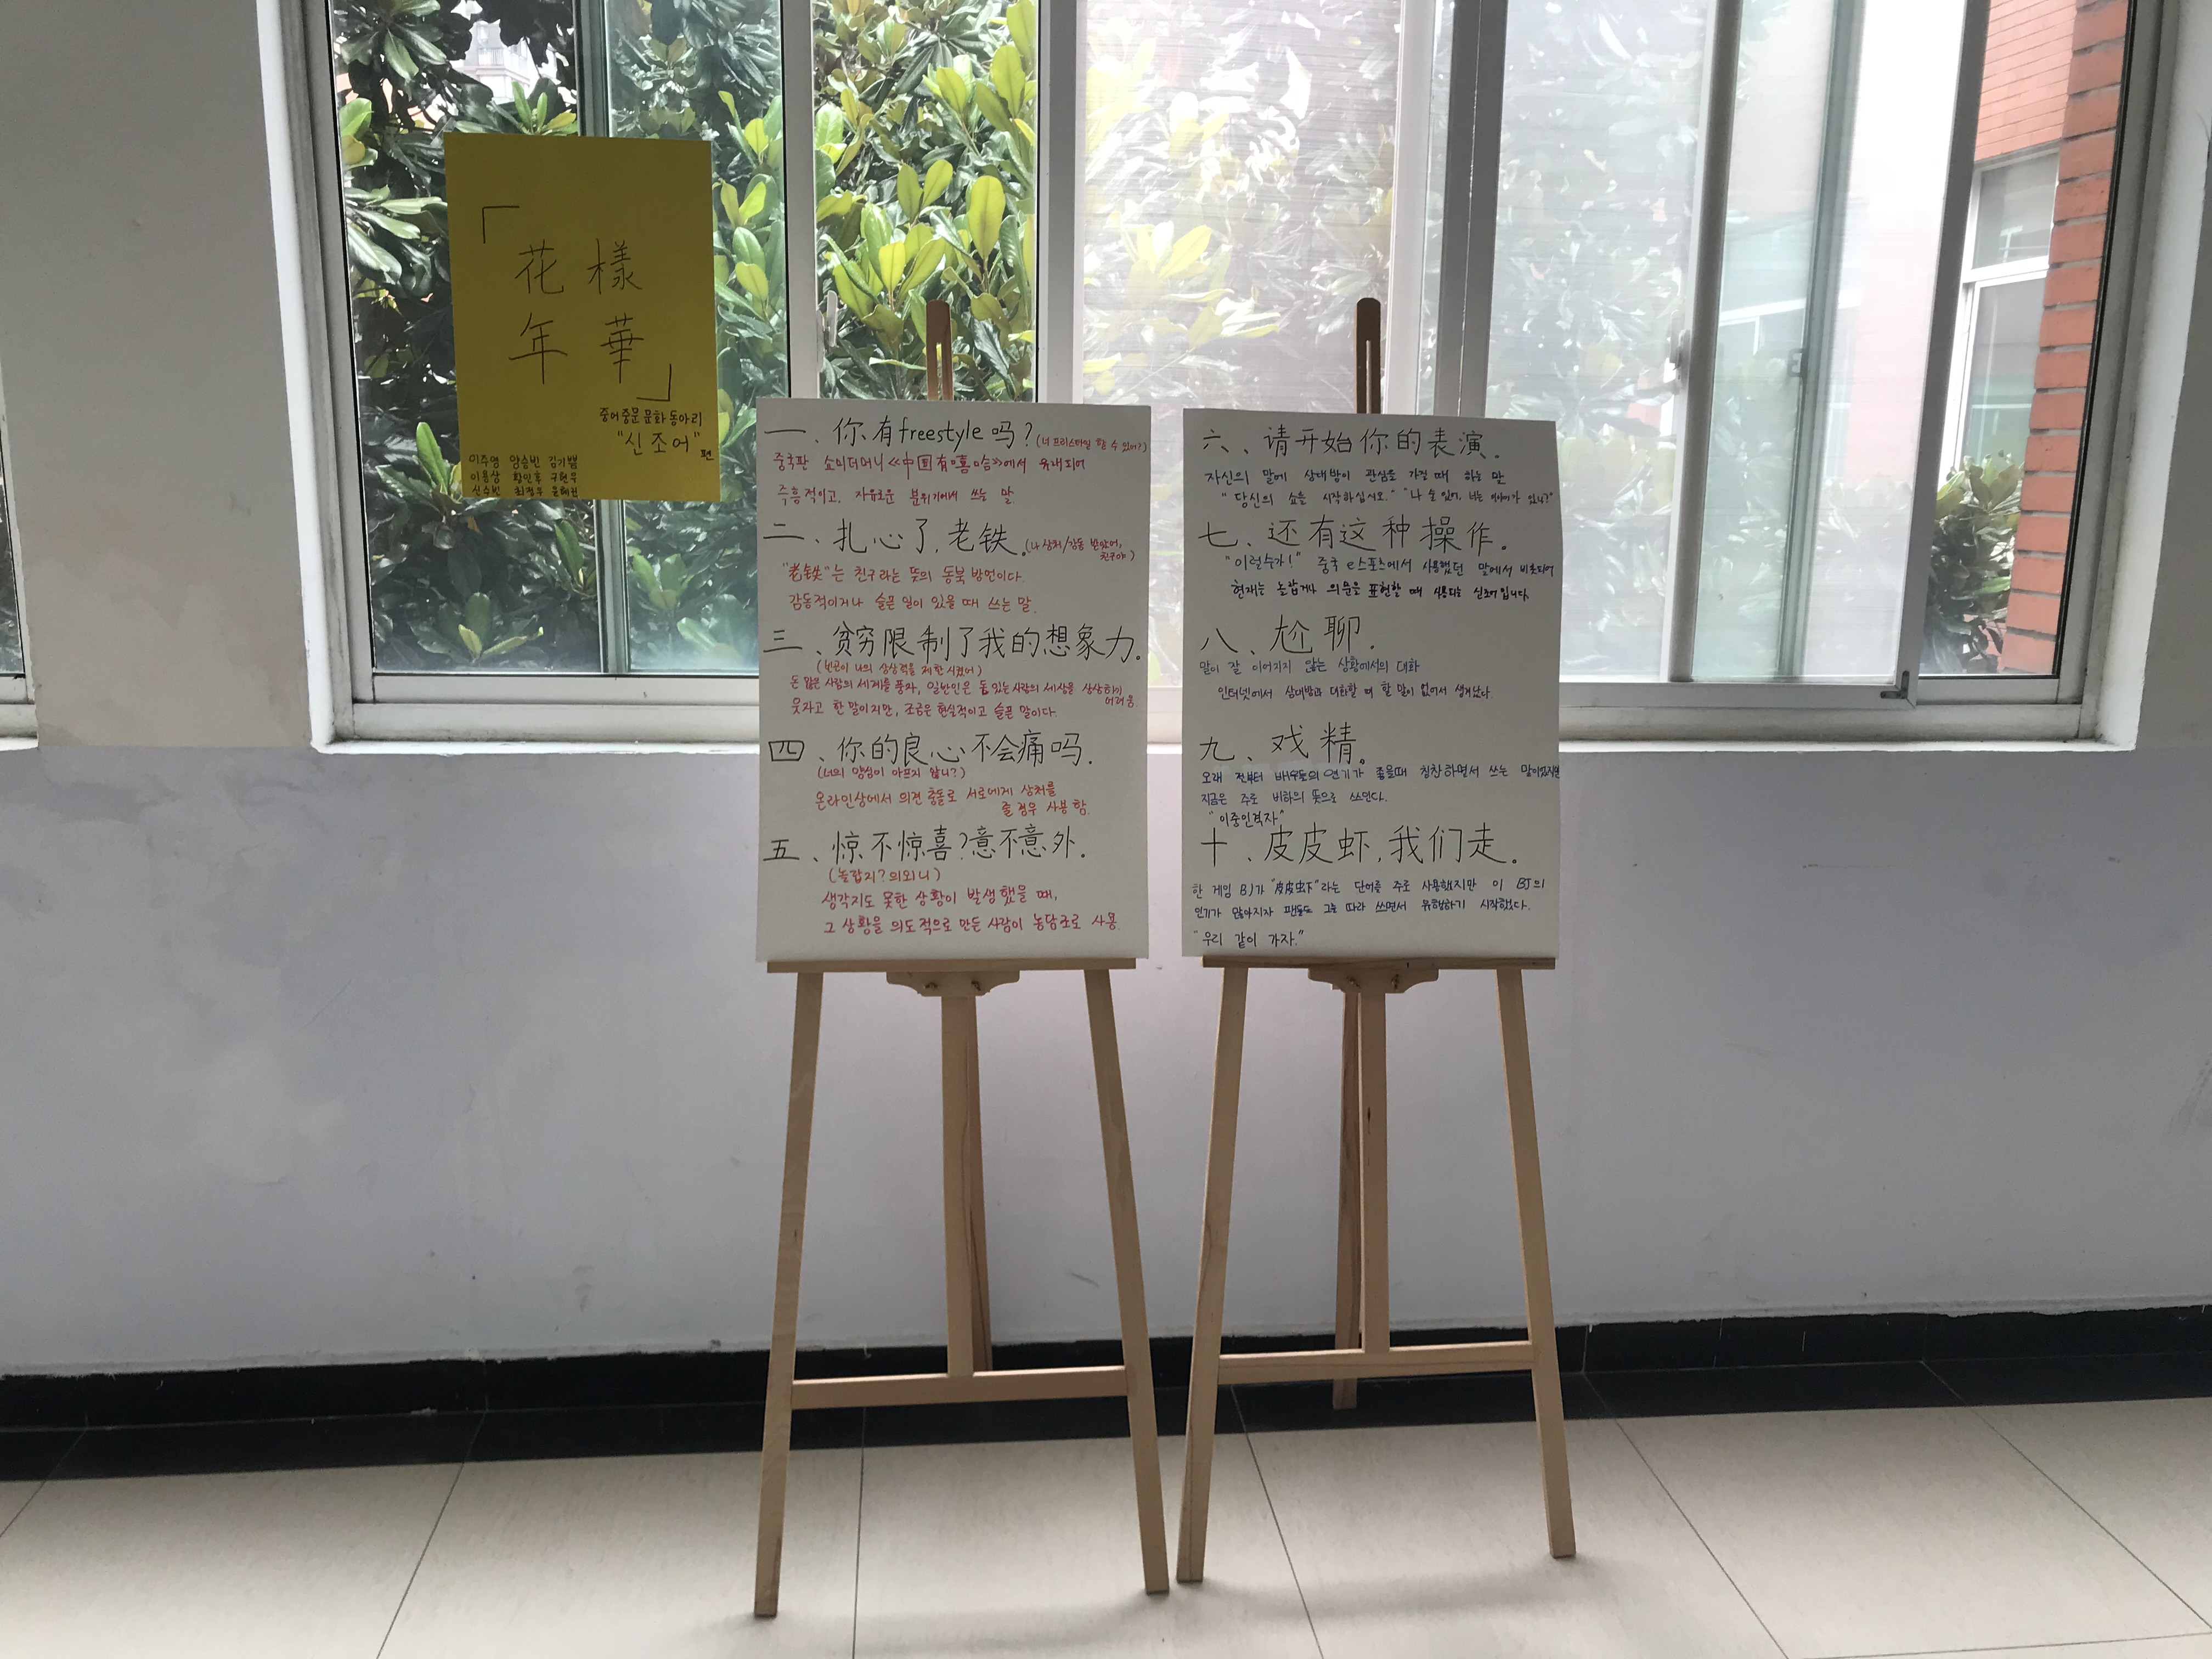 「花樣
年華」
중어중문 문화 동아리
"신조어" 편
이주영 양승빈 김기쁨
이용상 황인후 구현우
신수빈 최정우 윤혜권
一、你有freestyle吗?(너 프리스타일 할 수 있어?)
중국판 쇼미더머니《中国有嘻哈》에서 유래되어
즉흥적이고, 자유로운 분위기에서 쓰는 말.
二、扎心了,老铁。(나 상처/감동 받았어,
친구야)
"老铁"는 친구라는 뜻의 동북 방언이다.
감동적이거나 슬픈 일이 있을 때 쓰는 말.
三、贫穷限制了我的想象力。
(빈곤이 나의 상상력을 제한시켰어)
돈 많은 사람의 세계를 풍자, 일반인은 돈 있는 사람의 세상을 상상하기
어려움.
웃자고 한 말이지만, 조금은 현실적이고 슬픈 말이다.
四、你的良心不会痛吗.
(너의 양심이 아프지 않니?)
온라인상에서 의견 충돌로 서로에게 상처를
줄 경우 사용 함.
五、惊不惊喜?意不意外.
(놀랍지? 의외니)
생각지도 못한 상황이 발생했을 때,
그 상황을 의도적으로 만든 사람이 농담조로 사용.
六、请开始你的表演。
자신의 말에 상대방이 관심을 가질 때 하는 말
"당신의 쇼를 시작하십시오." "나 술 있어, 너는 이야기 있니?"
七、还有这种操作。
"이런수가!" 중국 e스포츠에서 사용했던 말에서 비롯되어
현재는 놀랍거나 의문을 표현할 때 사용되는 신조어입니다.
八、尬聊.
말이 잘 이어지지 않는 상황에서의 대화
인터넷에서 상대방과 대화할 때 할 말이 없어서 생겨났다.
九、戏精。
오래 전부터 배우들의 연기가 좋을때 칭찬하면서 쓰는 말이었지만
지금은 주로 비하의 뜻으로 쓰인다.
"이중인격자"
十、皮皮虾,我们走。
한 게임 BJ가 "皮皮虾"라는 단어를 주로 사용했지만 이 BJ의
인기가 많아지자 팬들도 그를 따라 쓰면서 유행하기 시작했다.
"우리 같이 가자."